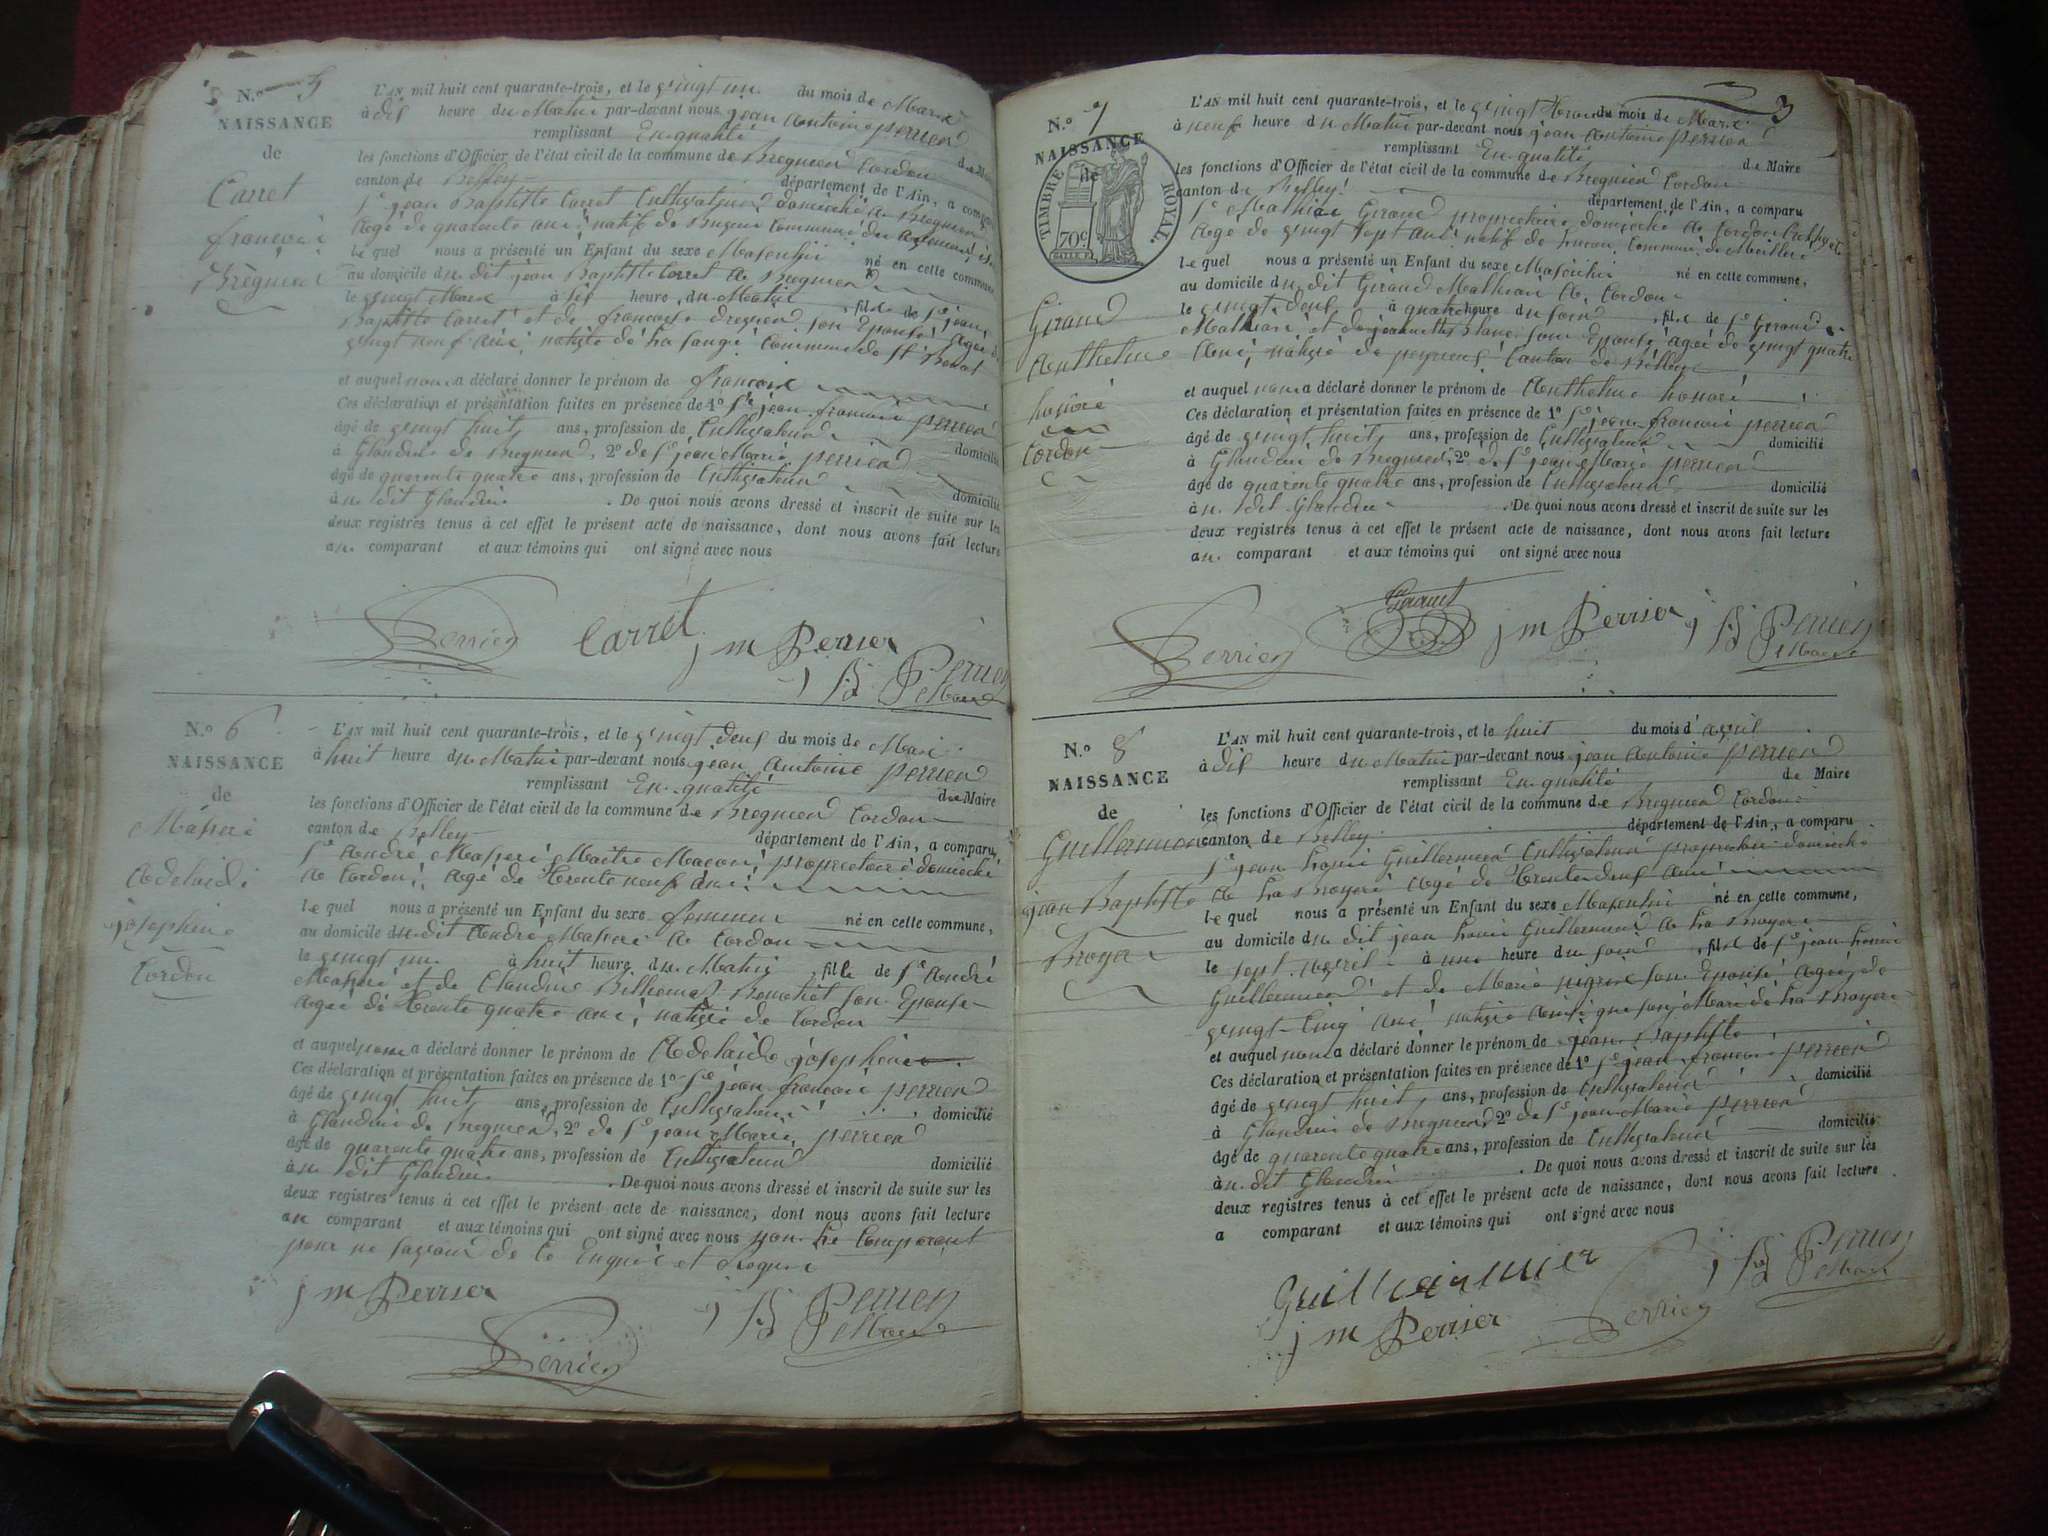 N.º 5
NAISSANCE
de
Carret
françois
Brégnier
L'AN mil huit cent quarante-trois, et le vingt un du mois de Mars
à dix heure du Matin par-devant nous jean Antoine perrier
remplissant En qualité de Maire
les fonctions d'Officier de l'état civil de la commune de Bregnier Cordon
canton de Belley département de l'Ain, a comparu
Sr jean Baptiste Carret Cultivateur domicilié à Bregnier
Agé de quarante ans, natif de commune
le quel nous a présenté un Enfant du sexe Masculin né en cette commune
au domicile du dit jean Baptiste Carret à Bregnier
le vingt Mars à six heure du Matin, fils de Sr jean
Baptiste Carret et de françoise son Epouse Agée de
vingt neuf ans, native de commune de St Benoit
et auquel nous a déclaré donner le prénom de françois
Ces déclaration et présentation faites en présence de 1º Sr jean françois perrier
âgé de vingt huit ans, profession de Cultivateur domicilié
à Glandieu de Bregnier, 2º de Sr jean Marie perrier
âgé de quarente quatre ans, profession de Cultivateur domicilié
à u dit Glandieu. De quoi nous avons dressé et inscrit de suite sur les
deux registres tenus à cet effet le présent acte de naissance, dont nous avons fait lecture
au comparant et aux témoins qui ont signé avec nous
Perrier Carret j m Perrier
Perrier
Maire
N.º 6
NAISSANCE
de
Adelaide
josephine
Cordon
L'AN mil huit cent quarante-trois, et le vingt deux du mois de Mars
à huit heure du Matin par-devant nous jean Antoine perrier
remplissant En qualité de Maire
les fonctions d'Officier de l'état civil de la commune de Bregnier Cordon
canton de Belley département de l'Ain, a comparu
Sr André Maître Maçon, propriétaire domicilié
à Cordon, Agé de trente neuf ans
le quel nous a présenté un Enfant du sexe feminin né en cette commune,
au domicile du dit André à Cordon
le vingt un à huit heure du Matin, fille de Sr André
et de Claudine son Epouse
Agée de trente quatre ans, native de Cordon
et auquel nous a déclaré donner le prénom de Adelaide josephine
Ces déclaration et présentation faites en présence de 1º Sr jean françois perrier
âgé de vingt huit ans, profession de Cultivateur domicilié
à Glandieu de Bregnier, 2º de Sr jean Marie perrier
âgé de quarente quatre ans, profession de Cultivateur domicilié
à u dit Glandieu. De quoi nous avons dressé et inscrit de suite sur les
deux registres tenus à cet effet le présent acte de naissance, dont nous avons fait lecture
au comparant et aux témoins qui ont signé avec nous non le Comparant
pour ne savoir de ce Enquis et Requis
j m Perrier Perrier
Maire
Perrier
3
N.º 7
NAISSANCE
de
TIMBRE ROYAL.
70c
Giraud
Anthelme
honoré
Cordon
L'AN mil huit cent quarante-trois, et le vingt trois du mois de Mars
à neuf heure du Matin par-devant nous jean Antoine perrier
remplissant En qualité de Maire
les fonctions d'Officier de l'état civil de la commune de Bregnier Cordon
canton de Belley département de l'Ain, a comparu
Sr Mathieu Giraud propriétaire domicilié à Cordon
Agé de vingt sept ans natif de commune de
le quel nous a présenté un Enfant du sexe Masculin né en cette commune,
au domicile du dit Giraud Mathieu à Cordon
le vingt deux à quatre heure du soir, fils de Sr Giraud
Mathieu et de jeannette Blanc son Epouse, agée de vingt quatre
Ans, native de peyrieu Canton de Belley
et auquel nous a déclaré donner le prénom de Anthelme honoré
Ces déclaration et présentation faites en présence de 1º Sr jean françois perrier
âgé de vingt huit ans, profession de Cultivateur domicilié
à Glandieu de Bregnier, 2º de Sr jean Marie perrier
âgé de quarente quatre ans, profession de Cultivateur domicilié
à u dit Glandieu. De quoi nous avons dressé et inscrit de suite sur les
deux registres tenus à cet effet le présent acte de naissance, dont nous avons fait lecture
au comparant et aux témoins qui ont signé avec nous
Perrier j m Perrier Perrier
Maire
N.º 8
NAISSANCE
de
Guillermier
jean Baptiste
L'AN mil huit cent quarante-trois, et le huit du mois d'avril
à dix heure du Matin par-devant nous jean Antoine perrier
remplissant En qualité de Maire
les fonctions d'Officier de l'état civil de la commune de Bregnier Cordon
canton de Belley département de l'Ain, a comparu
Sr jean Louis Guillermier Cultivateur propriétaire domicilié
à La Bruyere Agé de trente deux ans
le quel nous a présenté un Enfant du sexe Masculin né en cette commune,
au domicile du dit jean Louis Guillermier à La Bruyere
le sept avril à une heure du soir, fils de Sr jean Louis
Guillermier et de Marie son Epouse Agée de
vingt-cinq ans native ainsi que son Mari de La Bruyere
et auquel nous a déclaré donner le prénom de jean Baptiste
Ces déclaration et présentation faites en présence de 1º Sr jean françois perrier
âgé de vingt huit ans, profession de Cultivateur domicilié
à Glandieu de Bregnier, 2º de Sr jean Marie perrier
âgé de quarente quatre ans, profession de Cultivateur domicilié
à u dit Glandieu. De quoi nous avons dressé et inscrit de suite sur les
deux registres tenus à cet effet le présent acte de naissance, dont nous avons fait lecture
a comparant et aux témoins qui ont signé avec nous
Guillermier Perrier
j m Perrier Perrier Maire